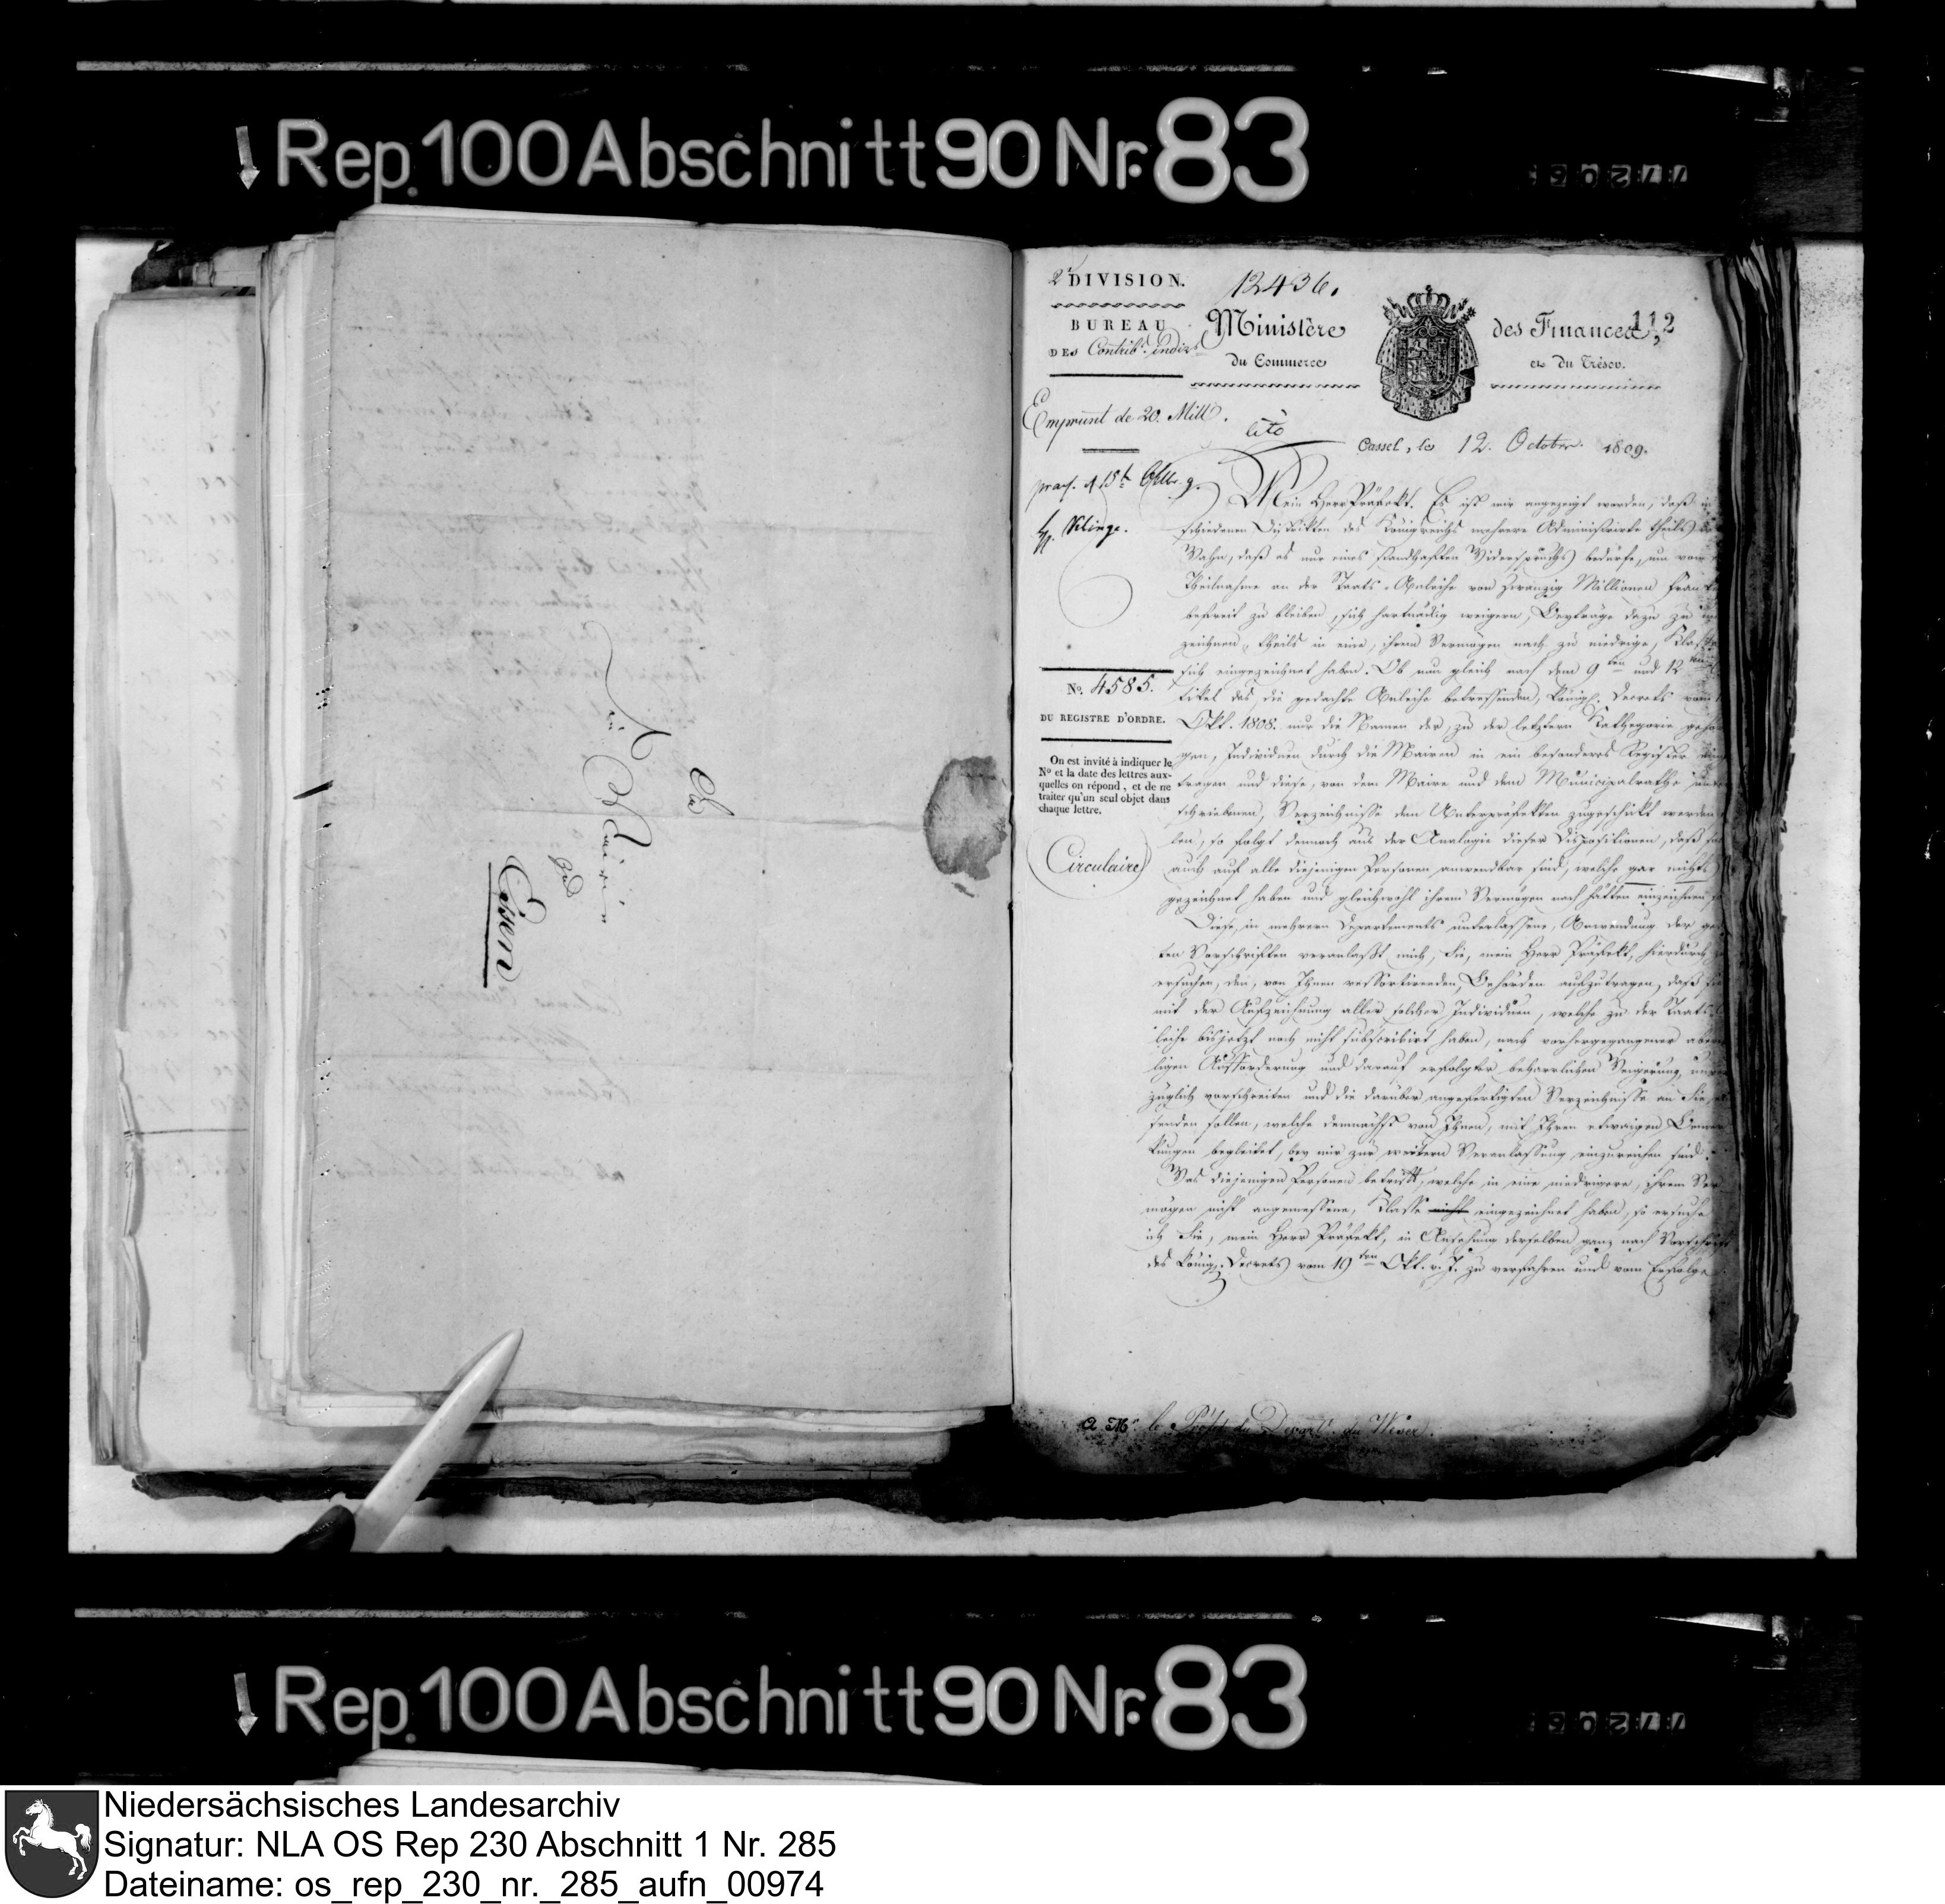 Rep. 100 Abschnitt 90 Nr. 83
An
die Mairie
zu
Essen
2e DIVISION.
BUREAU
DES Contrib.s indir.s
12436.
Ministère des Finances,
du Commerce et du Trésor.
112
Emprunt de 20. Mill.
cito
Cassel, le 12. October 1809.
praes. d 15t 9.
Mein Herr Präfekt. Es ist mir angezeigt worden, daß in
schiedenen Distrikten des Königreichs mehrere Administrirte theils im
Wahn, daß es nur eines standhaften Widerspruchs bedürfe, um von
Theilnahme an der Staats-Anleihe von zwanzig Millionen Franken
befreit zu bleiben, sich hartnäckig weigern, Beyträge dazu zu
zeichnen, theils in eine, ihrem Vermögen nach zu niedrige, Klasse
sich eingezeichnet haben. Ob nun gleich nach dem 9ten und 12ten
tikel des, die gedachte Anleihe betreffenden, Königl. Decrets vom
Okt. 1808. nur die Namen der, zu der letztern Kathegorie gehö
gen, Individuen durch die Mairen in ein besonderes Register
tragen und diese, von dem Maire und dem Municipalrathe unter
schriebenen, Verzeichnisse den Unterpräfekten zugeschickt werden
len, so folgt dennoch aus der Analogie dieser Dispositionen, daß sie
auch auf alle diejenigen Personen anwendbar sind, welche gar nichts
gezeichnet haben und gleichwohl ihrem Vermögen nach hätten einzeichnen
Diese, in mehrern Departements unterlassene, Anwendung der
ten Vorschriften veranlaßt mich, Sie, mein Herr Präfekt, hierdurch zu
ersuchen, den, von Ihnen ressortirenden, Behörden aufzutragen, daß sie
mit der Aufzeichnung aller solcher Individuen, welche zu der Staats
leihe bis jetzt noch nicht subscribirt haben, nach vorhergegangener aberma
ligen Aufforderung und darauf erfolgter beharrlichen Weigerung, unver
züglich vorschreiten und die darüber angefertigten Verzeichnisse an Sie
senden sollen, welche demnächst von Ihnen, mit Ihren etwaigen Bemer
kungen begleitet, bey mir zur weitern Veranlassung einzureichen sind.
Was diejenigen Personen betrifft, welche in eine niedrigere, ihrem Ver
mögen nicht angemessene, Klasse nicht eingezeichnet haben, so ersuche
ich Sie, mein Herr Präfekt, in Ansehung derselben ganz nach Vorschrift
des Königl. Decrets vom 19ten Okt. v. J. zu verfahren und vom Erfolge
No. 4585.
DU REGISTRE D'ORDRE.
On est invité à indiquer le
No et la date des lettres aux-
quelles on répond, et de ne
traiter qu'un seul objet dans
chaque lettre.
Circulaire
A Mr le Préfet du Départt. du Weser.
Rep. 100 Abschnitt 90 Nr. 83
Niedersächsisches Landesarchiv
Signatur: NLA OS Rep 230 Abschnitt 1 Nr. 285
Dateiname: os_rep_230_nr._285_aufn_00974